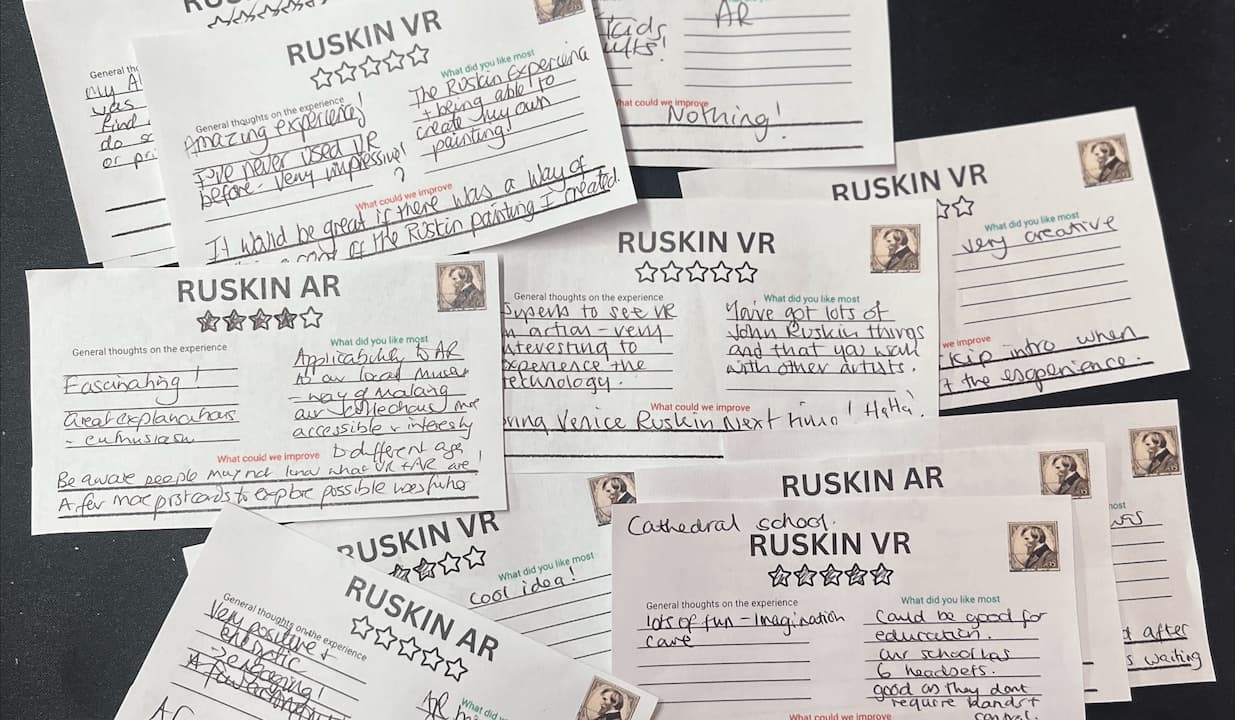 General
My
was
find
do
or pri
RUSKIN VR
General thoughts on the experience
Amazing experience!
I've never used VR
before - very impressive!
What did you like most
The Ruskin Experience
+ being able to
create my own
painting!
What could we improve
?
It would be great if there was a way of
of the Ruskin painting I created.
kids
AR
What could we improve
Nothing!
RUSKIN VR
What did you like most
very creative
we improve
skip intro when
the experience.
RUSKIN AR
General thoughts on the experience
Fascinating!
Great explanations
- enthusiasm
What did you like most
Applicability to AR
to our local museum
- way of making
our collections more
accessible + interesting
to different age
What could we improve
Be aware people may not know what VR + AR are!
A few more postcards to explore possible uses further
RUSKIN VR
General thoughts on the experience
Superb to see VR
in action - very
interesting to
experience the
technology.
What did you like most
You've got lots of
John Ruskin things
and that you work
with other artists.
What could we improve
Bring Venice Ruskin Next time! HaHa!
RUSKIN VR
What did you like most
cool idea!
RUSKIN AR
General thoughts on the experience
Very positive +
energetic
engaging!
AR
What did
RUSKIN AR
most
after
waiting
Cathedral school.
RUSKIN VR
General thoughts on the experience
lots of fun - Imagination
cave
What did you like most
Could be good for
education.
our school has
6 headsets.
good as they dont
require hands +
control.
What could we improve